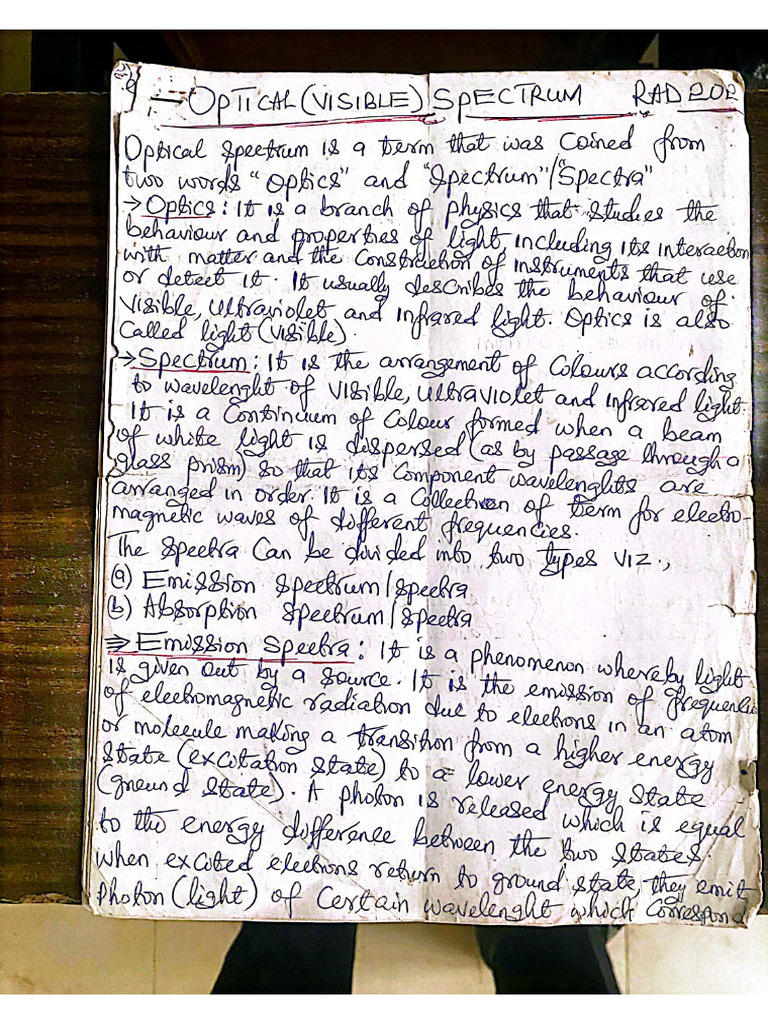 OPTICAL (VISIBLE) SPECTRUM RAD 202
Optical spectrum is a term that was coined from
two words "Optics" and "Spectrum"/"Spectra"
→ Optics: It is a branch of physics that studies the
behaviour and properties of light, including its interaction
with matter and the construction of instruments that use
or detect it. It usually describes the behaviour of
visible, ultraviolet and infrared light. Optics is also
called light (visible).
→ Spectrum: It is the arrangement of colours according
to wavelenght of visible, ultraviolet and infrared light.
It is a continuum of colour formed when a beam
of white light is dispersed (as by passage through a
glass prism) so that its component wavelenghts are
arranged in order. It is a collection of term for electro-
magnetic waves of different frequencies.
The spectra can be divided into two types viz.,
(a) Emission spectrum/spectra
(b) Absorption spectrum/spectra
⇒ Emission Spectra: It is a phenomenon whereby light
is given out by a source. It is the emission of frequencie
of electromagnetic radiation due to electrons in an atom
or molecule making a transition from a higher energy
state (excitation state) to a lower energy state
(ground state). A photon is released which is equal
to the energy difference between the two states.
when excited electrons return to ground state, they emit
photon (light) of certain wavelenght which correspond